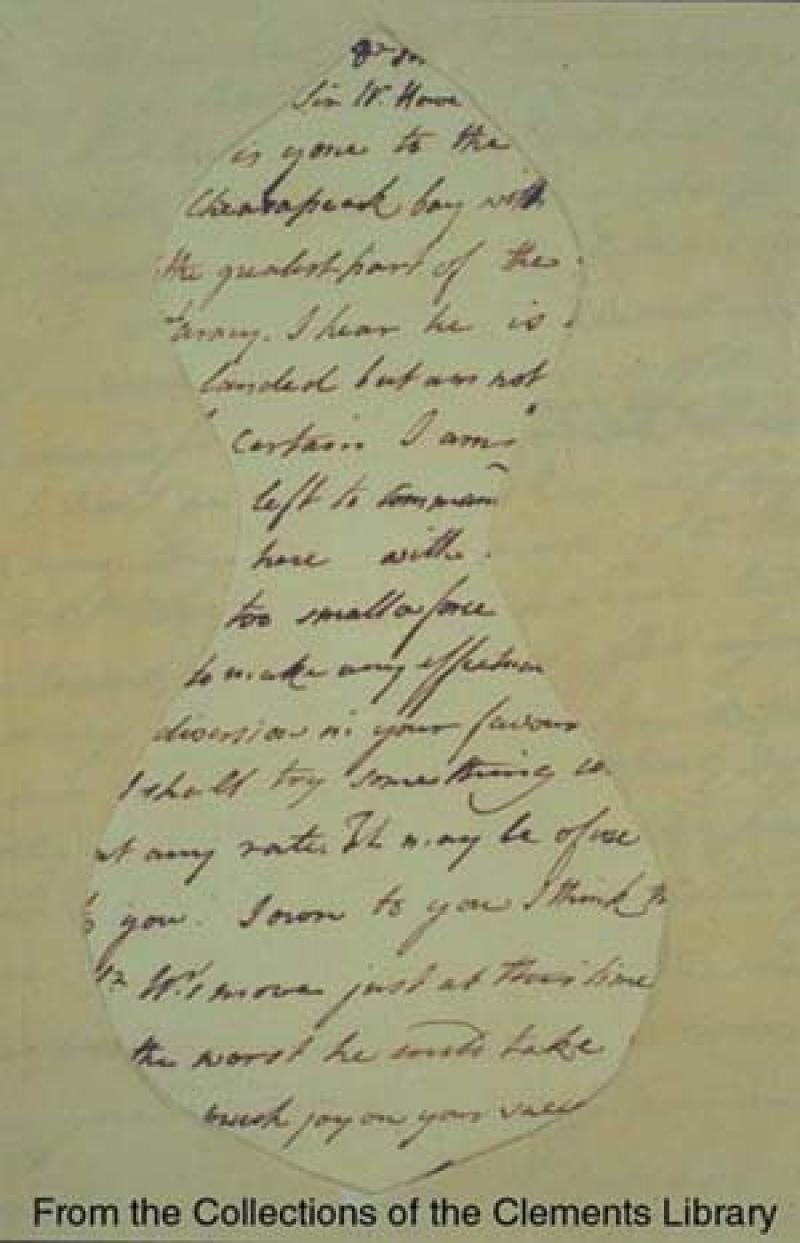 Sir W. Howe
is gone to the
Chesapeak bay with
the greatest part of the
army. I hear he is
landed but am not
certain I am
left to command
here with
too small a force
to make any effectual
diversion in your favour
I shall try something
at any rate. It may be of use
to you. I own to you I think
Sr W's move just at this time
the worst he could take
much joy on your
From the Collections of the Clements Library